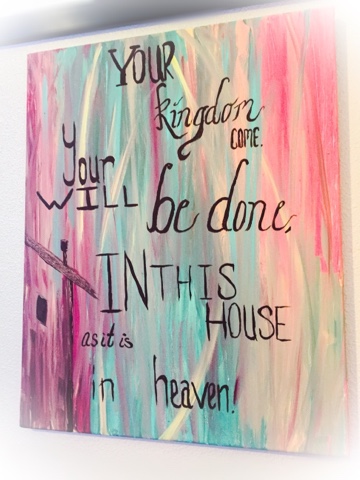 YOUR
kingdom
COME.
Your
WILL
be done,
IN THIS
HOUSE
as it is
in heaven!